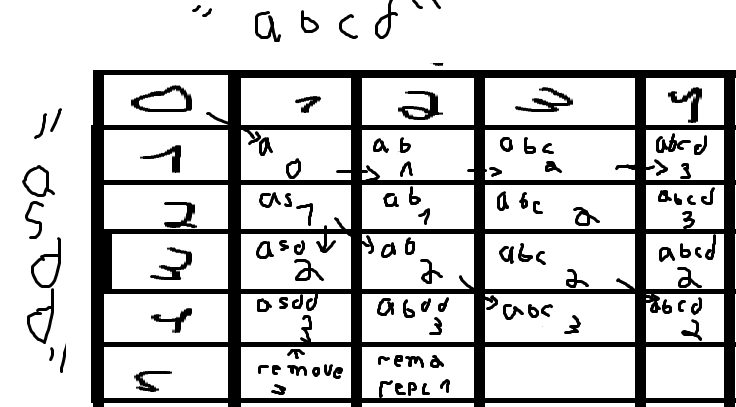 "abcd"
0 1 2 3 4
1 a 0 ab 1 abc 2 abcd 3
2 as 1 ab 1 abc 2 abcd 3
3 asd 2 ab 2 abc 2 abcd 2
4 asdd 3 abdd 3 abc 3 abcd 2
5 remove 3 rema repl 1
"asdd"